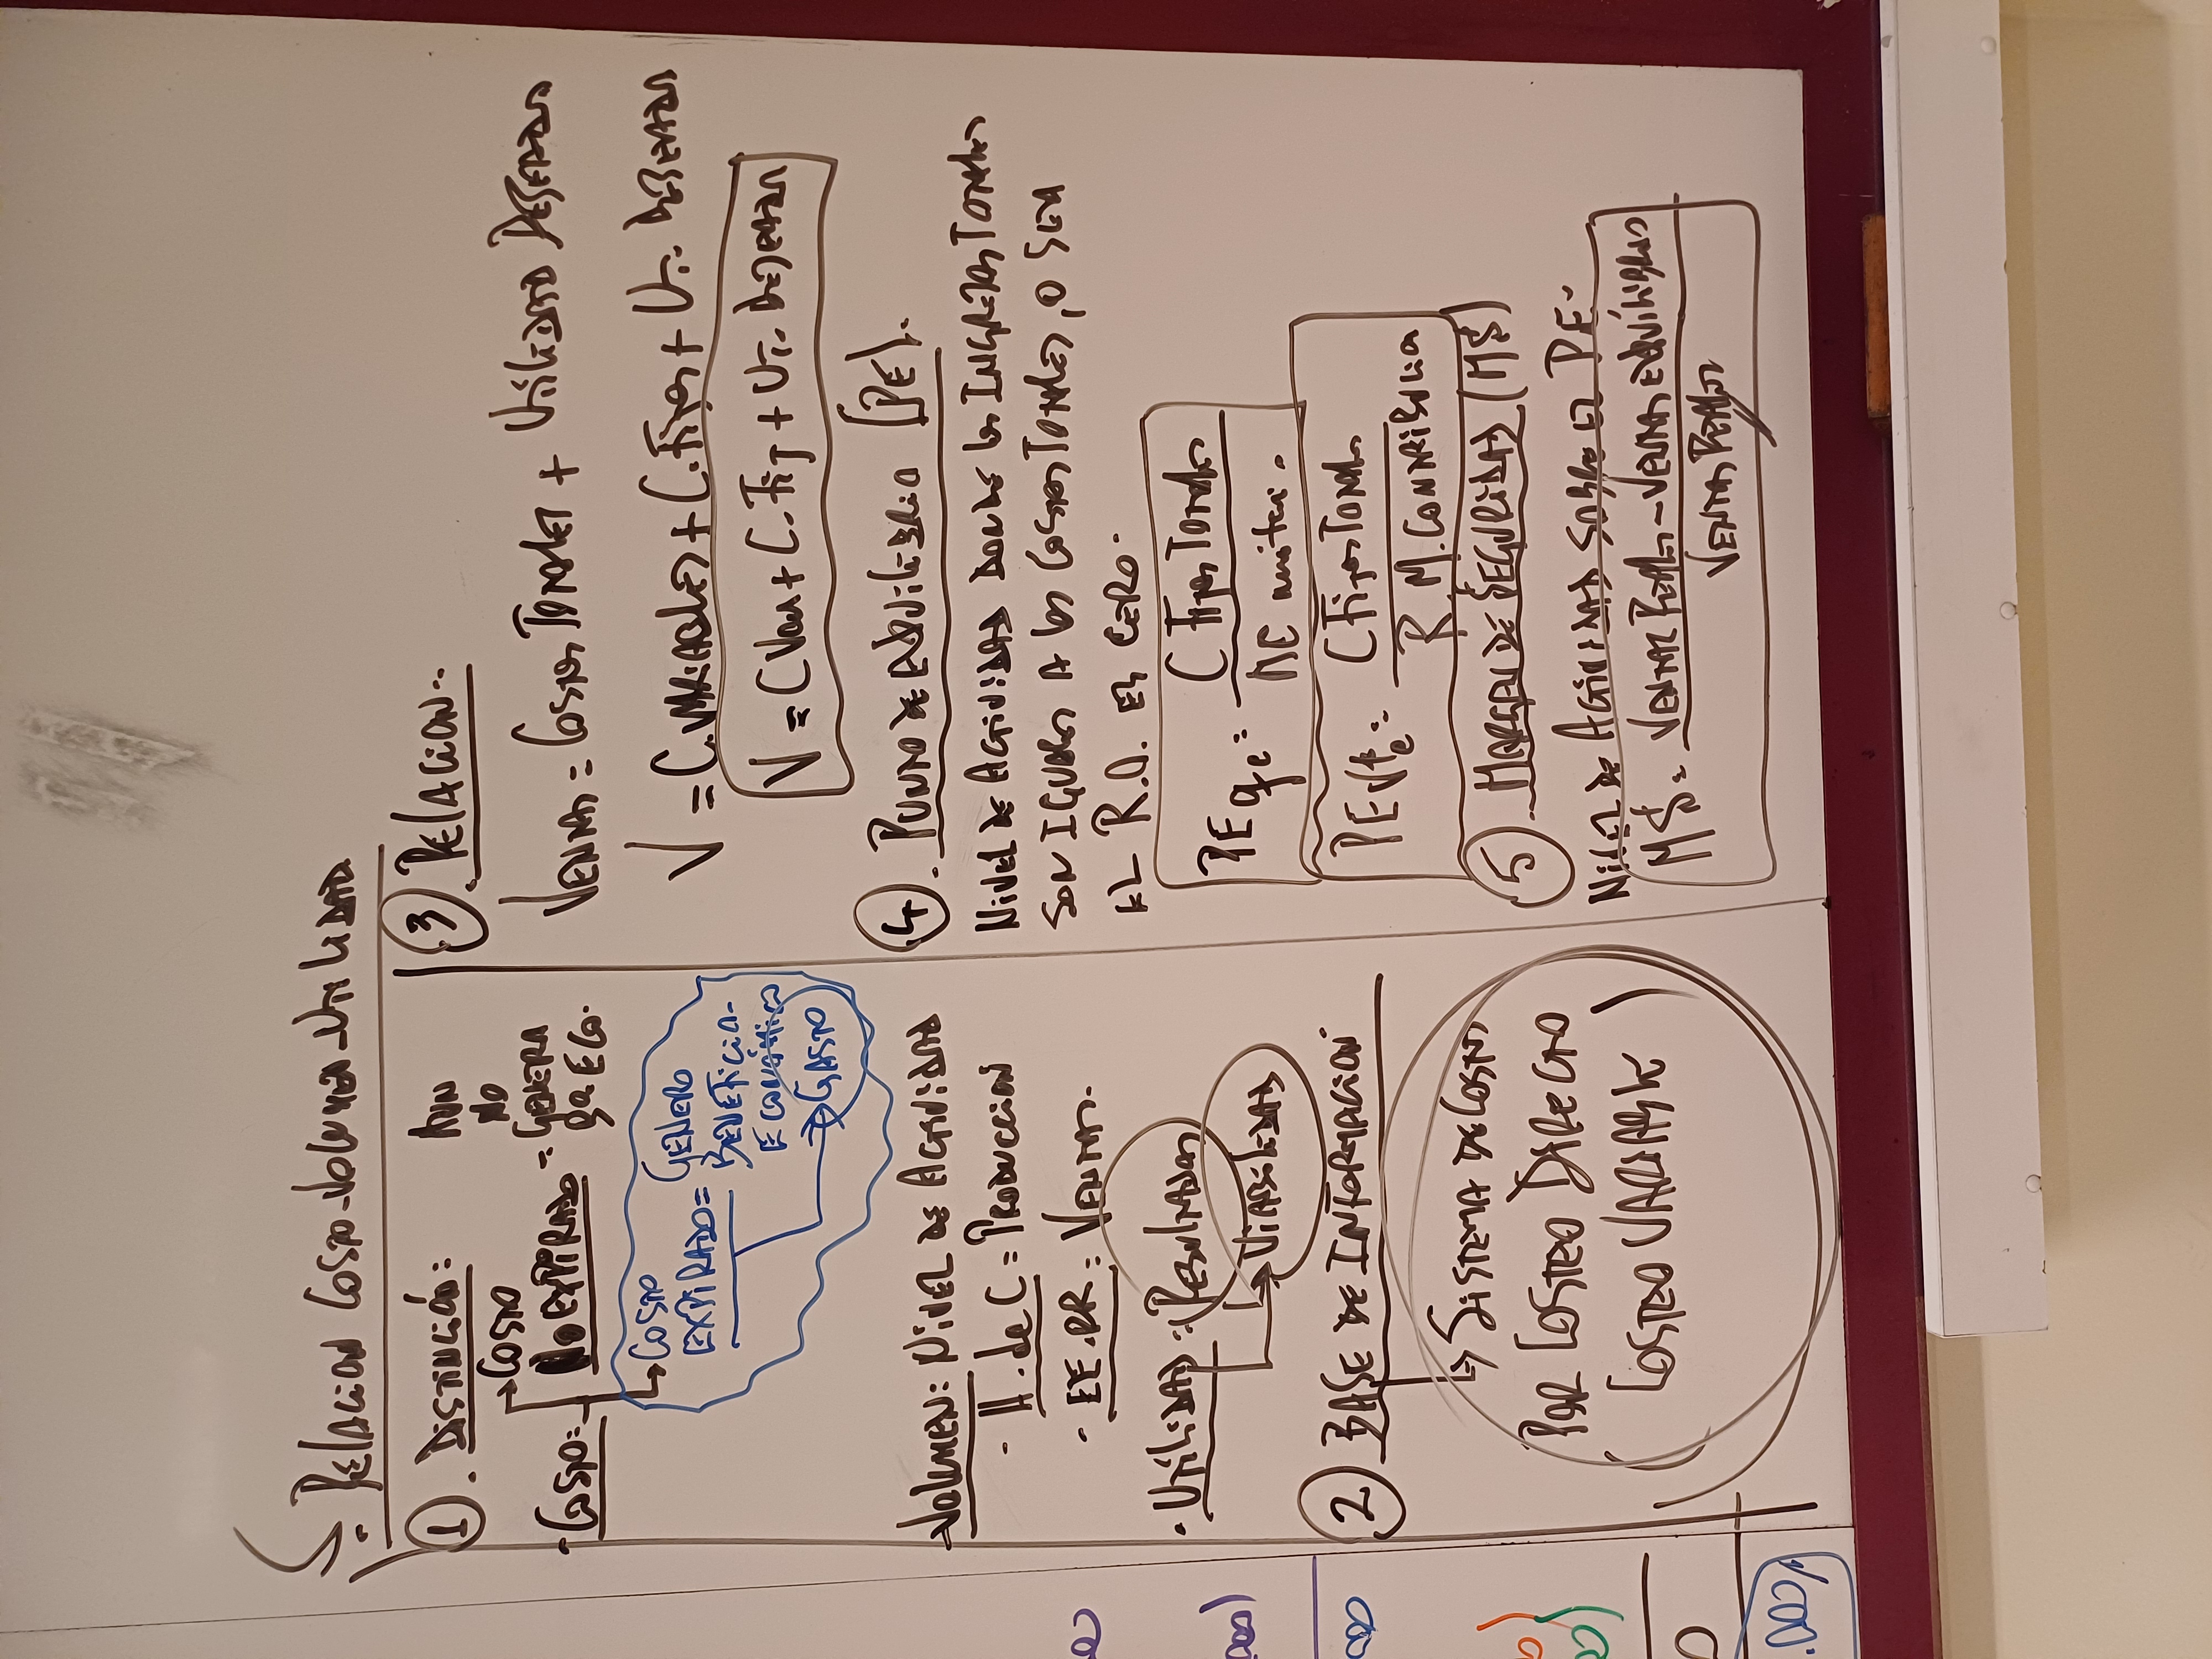 . Relacion Costo-Volumen-Utilidad
1. Distinción:
. Costo:
Costo
No Expirado = Aun
No
Genera
Bº Eco.
Costo
Expirado = Genero
Beneficio
Económico
Gasto
Volumen: Nivel de Actividad
. H. de C = Produccion
. EE.RR : Ventas.
. Utilidad : Resultados
Viabilidad
2 Base de Información
Sistema de Costos
Por Costeo Directo
( Costeo Variable )
3. Relacion..
Ventas = Costos Totales + Utilidad Deseada
V = C. Variables + C. Fijos + Ut. Deseada
V = C Var + C. Fij + Ut. Deseada
4. Punto de Equilibrio [PE].
Nivel de Actividad donde los Ingresos Totales
son iguales a los Costos Totales, o sea
el R.O. es cero.
PE qe = C Fijos Totales
MC unitari.
PE Vte = C Fijos Totales
R. M. Contribucion
5. Margen de Seguridad (MS)
Nivel de Actividad sobre el PE.
MS = Ventas Reales - Ventas Equilibrio
Ventas Reales